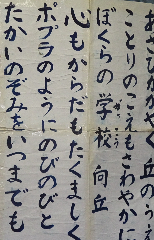 あさひかがやく丘のうえ
ことりのこえもさわやかに
ぼくらの学校 向丘
心もからだもたくましく
ポプラのようにのびのびと
たかいのぞみをいつまでも